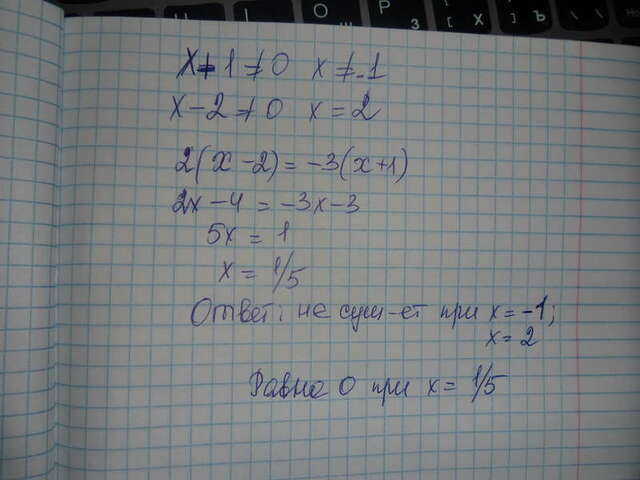 О Р З Х Ъ
x+1≠0 x≠-1
x-2≠0 x=2
2(x-2)=-3(x+1)
2x-4=-3x-3
5x=1
x=1/5
Ответ: не сущ-ет при x=-1;
x=2
Равно 0 при x=1/5